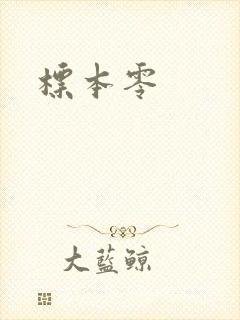 標本零
大藍鯨